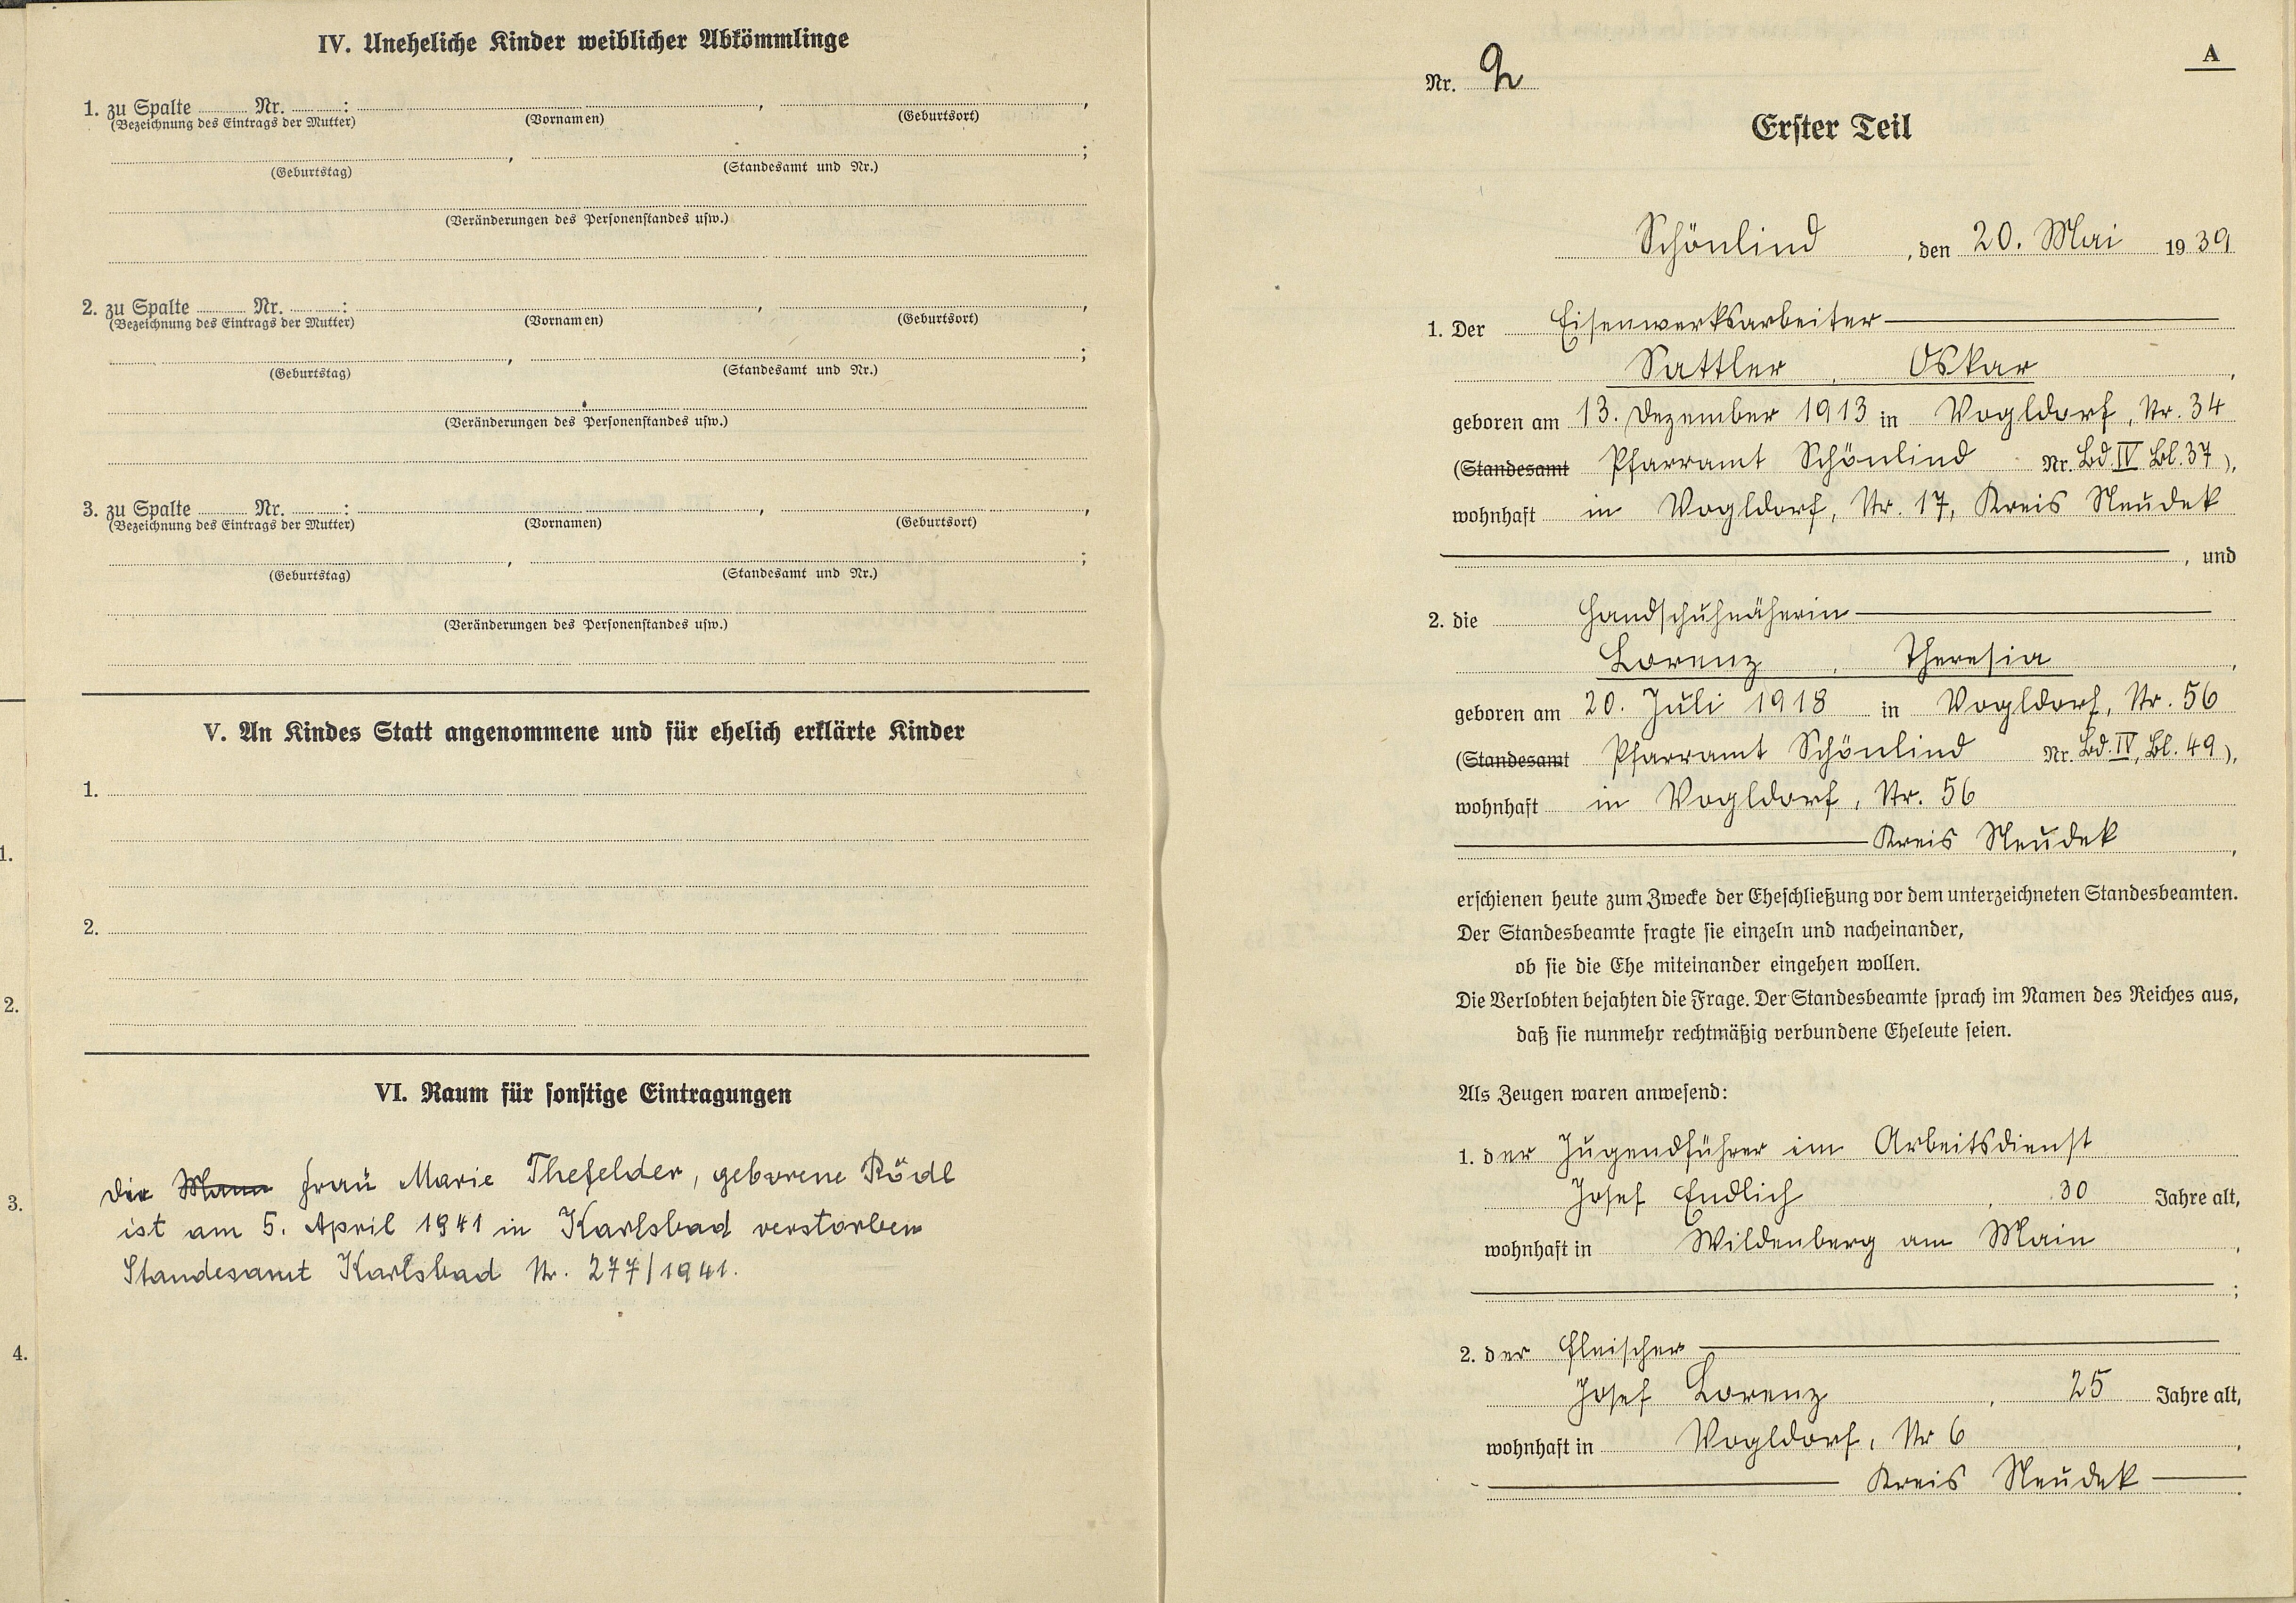 IV. Uneheliche Kinder weiblicher Abkömmlinge
1. zu Spalte Nr. : , ,
(Bezeichnung des Eintrags der Mutter) (Vornamen) (Geburtsort)
, ;
(Geburtstag) (Standesamt und Nr.)
(Veränderungen des Personenstandes usw.)
2. zu Spalte Nr. : , ,
(Bezeichnung des Eintrags der Mutter) (Vornamen) (Geburtsort)
, ;
(Geburtstag) (Standesamt und Nr.)
(Veränderungen des Personenstandes usw.)
3. zu Spalte Nr. : , ,
(Bezeichnung des Eintrags der Mutter) (Vornamen) (Geburtsort)
, ;
(Geburtstag) (Standesamt und Nr.)
(Veränderungen des Personenstandes usw.)
V. An Kindes Statt angenommene und für ehelich erklärte Kinder
1.
2.
VI. Raum für sonstige Eintragungen
Die Mann Frau Marie Thefelder, geborene Rödl
ist am 5. April 1941 in Karlsbad verstorben
Standesamt Karlsbad Nr. 277/1941.
1.
2.
3.
4.
A
Nr. 2
Erster Teil
Schönlind, den 20. Mai 1939
1. Der Eisenwerksarbeiter
Sattler, Oskar,
geboren am 13. Dezember 1913 in Vogldorf, Nr. 34
(Standesamt Pfarramt Schönlind Nr. Bd. IV Bl. 37),
wohnhaft in Vogldorf, Nr. 17, Kreis Neudek
, und
2. die Handschuhnäherin
Lorenz, Theresia,
geboren am 20. Juli 1918 in Vogldorf, Nr. 56
(Standesamt Pfarramt Schönlind Nr. Bd. IV, Bl. 49),
wohnhaft in Vogldorf, Nr. 56
Kreis Neudek,
erschienen heute zum Zwecke der Eheschließung vor dem unterzeichneten Standesbeamten.
Der Standesbeamte fragte sie einzeln und nacheinander,
ob sie die Ehe miteinander eingehen wollen.
Die Verlobten bejahten die Frage. Der Standesbeamte sprach im Namen des Reiches aus,
daß sie nunmehr rechtmäßig verbundene Eheleute seien.
Als Zeugen waren anwesend:
1. der Jugendführer im Arbeitsdienst
Josef Endlich, 30 Jahre alt,
wohnhaft in Wildenberg am Main,
;
2. der Fleischer
Josef Lorenz, 25 Jahre alt,
wohnhaft in Vogldorf, Nr 6,
Kreis Neudek.